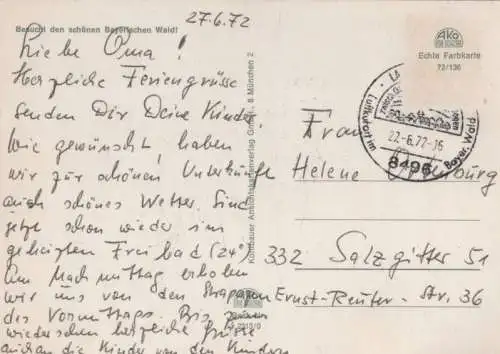 Besucht den schönen Bayerischen Wald!
27.6.72
Liebe Oma!
Herzliche Feriengrüsse
senden Dir Deine Kinder!
Wie gewünscht, haben
wir zur schönen Unterkunft
auch schönes Wetter. Sind
jetzt schon wieder im
geheizten Freibad (24°)
Am Nachmittag erholen
wir uns von den Strapazen
des Vormittags. Bis
wiedersehen herzliche Grüsse
auch an die Kinder von den Kindern
Ansichtskartenverlag GmbH, 8 München 2
Ako
Echte Farbkarte
72/136
Luftkurort im Bayer. Wald
22.-6.72-16
8496
Frau
Helene
332 Salzgitter 51
Ernst-Reuter-Str. 36